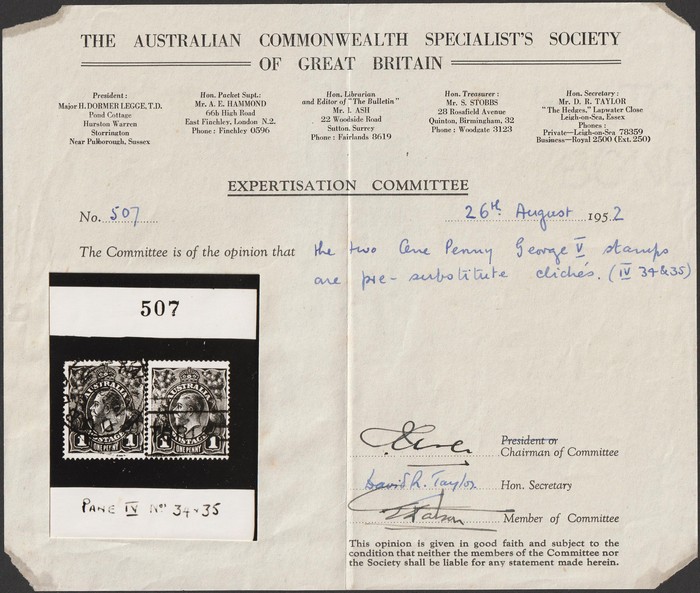 THE AUSTRALIAN COMMONWEALTH SPECIALIST'S SOCIETY
OF GREAT BRITAIN
President :
Major H. DORMER LEGGE, T.D.
Pond Cottage
Hurston Warren
Storrington
Near Pulborough, Sussex
Hon. Packet Supt.:
Mr. A. E. HAMMOND
66b High Road
East Finchley, London N.2.
Phone : Finchley 0596
Hon. Librarian
and Editor of "The Bulletin"
Mr. I. ASH
22 Woodside Road
Sutton, Surrey
Phone : Fairlands 8619
Hon. Treasurer :
Mr. S. STOBBS
28 Rosafield Avenue
Quinton, Birmingham, 32
Phone : Woodgate 3123
Hon. Secretary :
Mr. D. R. TAYLOR
"The Hedges," Lapwater Close
Leigh-on-Sea, Essex
Phones :
Private—Leigh-on-Sea 78359
Business—Royal 2500 (Ext. 250)
EXPERTISATION COMMITTEE
No. 507
26th August 1952
The Committee is of the opinion that the two One Penny George V stamps
are pre-substitute clichés. (IV 34 & 35)
507
AUSTRALIA
POSTAGE
1 1
ONE PENNY
AUSTRALIA
POSTAGE
1 1
ONE PENNY
PANE IV Nos 34 & 35
President or
Chairman of Committee
David R. Taylor Hon. Secretary
Member of Committee
This opinion is given in good faith and subject to the
condition that neither the members of the Committee nor
the Society shall be liable for any statement made herein.